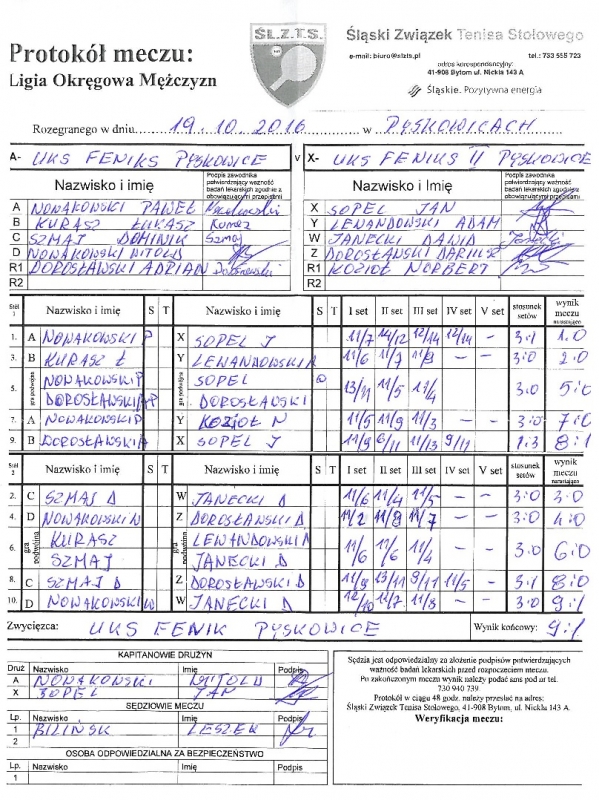 Protokół meczu:
Ligia Okręgowa Mężczyzn
ŚL.Z.T.S.
Śląski Związek Tenisa Stołowego
e-mail: biuro@slzts.pl tel.: 733 555 723
adres korespondencyjny:
41-908 Bytom ul. Nickla 143 A
Śląskie. Pozytywna energia
Rozegranego w dniu 19.10.2016 w PYSKOWICACH
A- UKS FENIKS PYSKOWICE v X- UKS FENIKS II PYSKOWICE
Nazwisko i imię Podpis zawodnika potwierdzający ważność badań lekarskich zgodnie z obowiązującymi przepisami Nazwisko i Imię Podpis zawodnika potwierdzający ważność badań lekarskich zgodnie z obowiązującymi przepisami
A NOWAKOWSKI PAWEŁ X SOPEL JAN
B KURASZ ŁUKASZ Y LEWANDOWSKI ADAM
C SZMAJ DOMINIK Szmaj W JANECKI DAWID
D NOWAKOWSKI WITOLD Z DOROSŁAWSKI DARIUSZ
R1 DOROSŁAWSKI ADRIAN R1 KOZIOŁ NORBERT
R2 R2
Stół 1 Nazwisko i imię S T Nazwisko i imię S T I set II set III set IV set V set stosunek setów wynik meczu narastająco
1. A NOWAKOWSKI P X SOPEL J 11/7 14/12 12/14 12/14 - 3:1 1:0
3. B KURASZ Ł Y LEWANDOWSKI A 11/6 11/7 11/9 - - 3:0 2:0
5. gra podwójna NOWAKOWSKI P SOPEL
DOROSŁAWSKI A DOROSŁAWSKI 13/11 11/5 11/4 3:0 5:0
7. A NOWAKOWSKI P Y KOZIOŁ N 11/5 11/9 11/3 - - 3:0 7:0
9. B DOROSŁAWSKI A X SOPEL J 11/9 6/11 11/13 9/11 - 1:3 8:1
Stół 2 Nazwisko i imię S T Nazwisko i imię S T I set II set III set IV set V set stosunek setów wynik meczu narastająco
2. C SZMAJ D W JANECKI D 11/6 11/4 11/5 - - 3:0 3:0
4. D NOWAKOWSKI W Z DOROSŁAWSKI D 11/2 11/8 11/7 - - 3:0 4:0
6. gra podwójna KURASZ LEWANDOWSKI A
SZMAJ JANECKI D 11/6 11/6 11/4 - - 3:0 6:0
8. C SZMAJ D Z DOROSŁAWSKI D 11/9 13/11 9/11 11/5 - 3:1 8:0
10. D NOWAKOWSKI W W JANECKI D 12/10 11/7 11/3 - - 3:0 9:1
Zwycięzca: UKS FENIK PYSKOWICE Wynik końcowy: 9:1
KAPITANOWIE DRUŻYN
Druż Nazwisko Imię Podpis
A NOWAKOWSKI WITOLD
X SOPEL JAN
SĘDZIOWIE MECZU
Lp. Nazwisko Imię Podpis
1 BILIŃSK LESZEK
2
OSOBA ODPOWIEDZIALNA ZA BEZPIECZEŃSTWO
Lp. Nazwisko Imię Podpis
1
Sędzia jest odpowiedzialny za złożenie podpisów potwierdzających
ważność badań lekarskich przed rozpoczęciem meczu.
Po zakończonym meczu wynik należy podać sms pod nr tel.
730 940 739.
Protokół w ciągu 48 godz. należy przesłać na adres:
Śląski Związek Tenisa Stołowego, 41-908 Bytom, ul. Nickla 143 A.
Weryfikacja meczu: